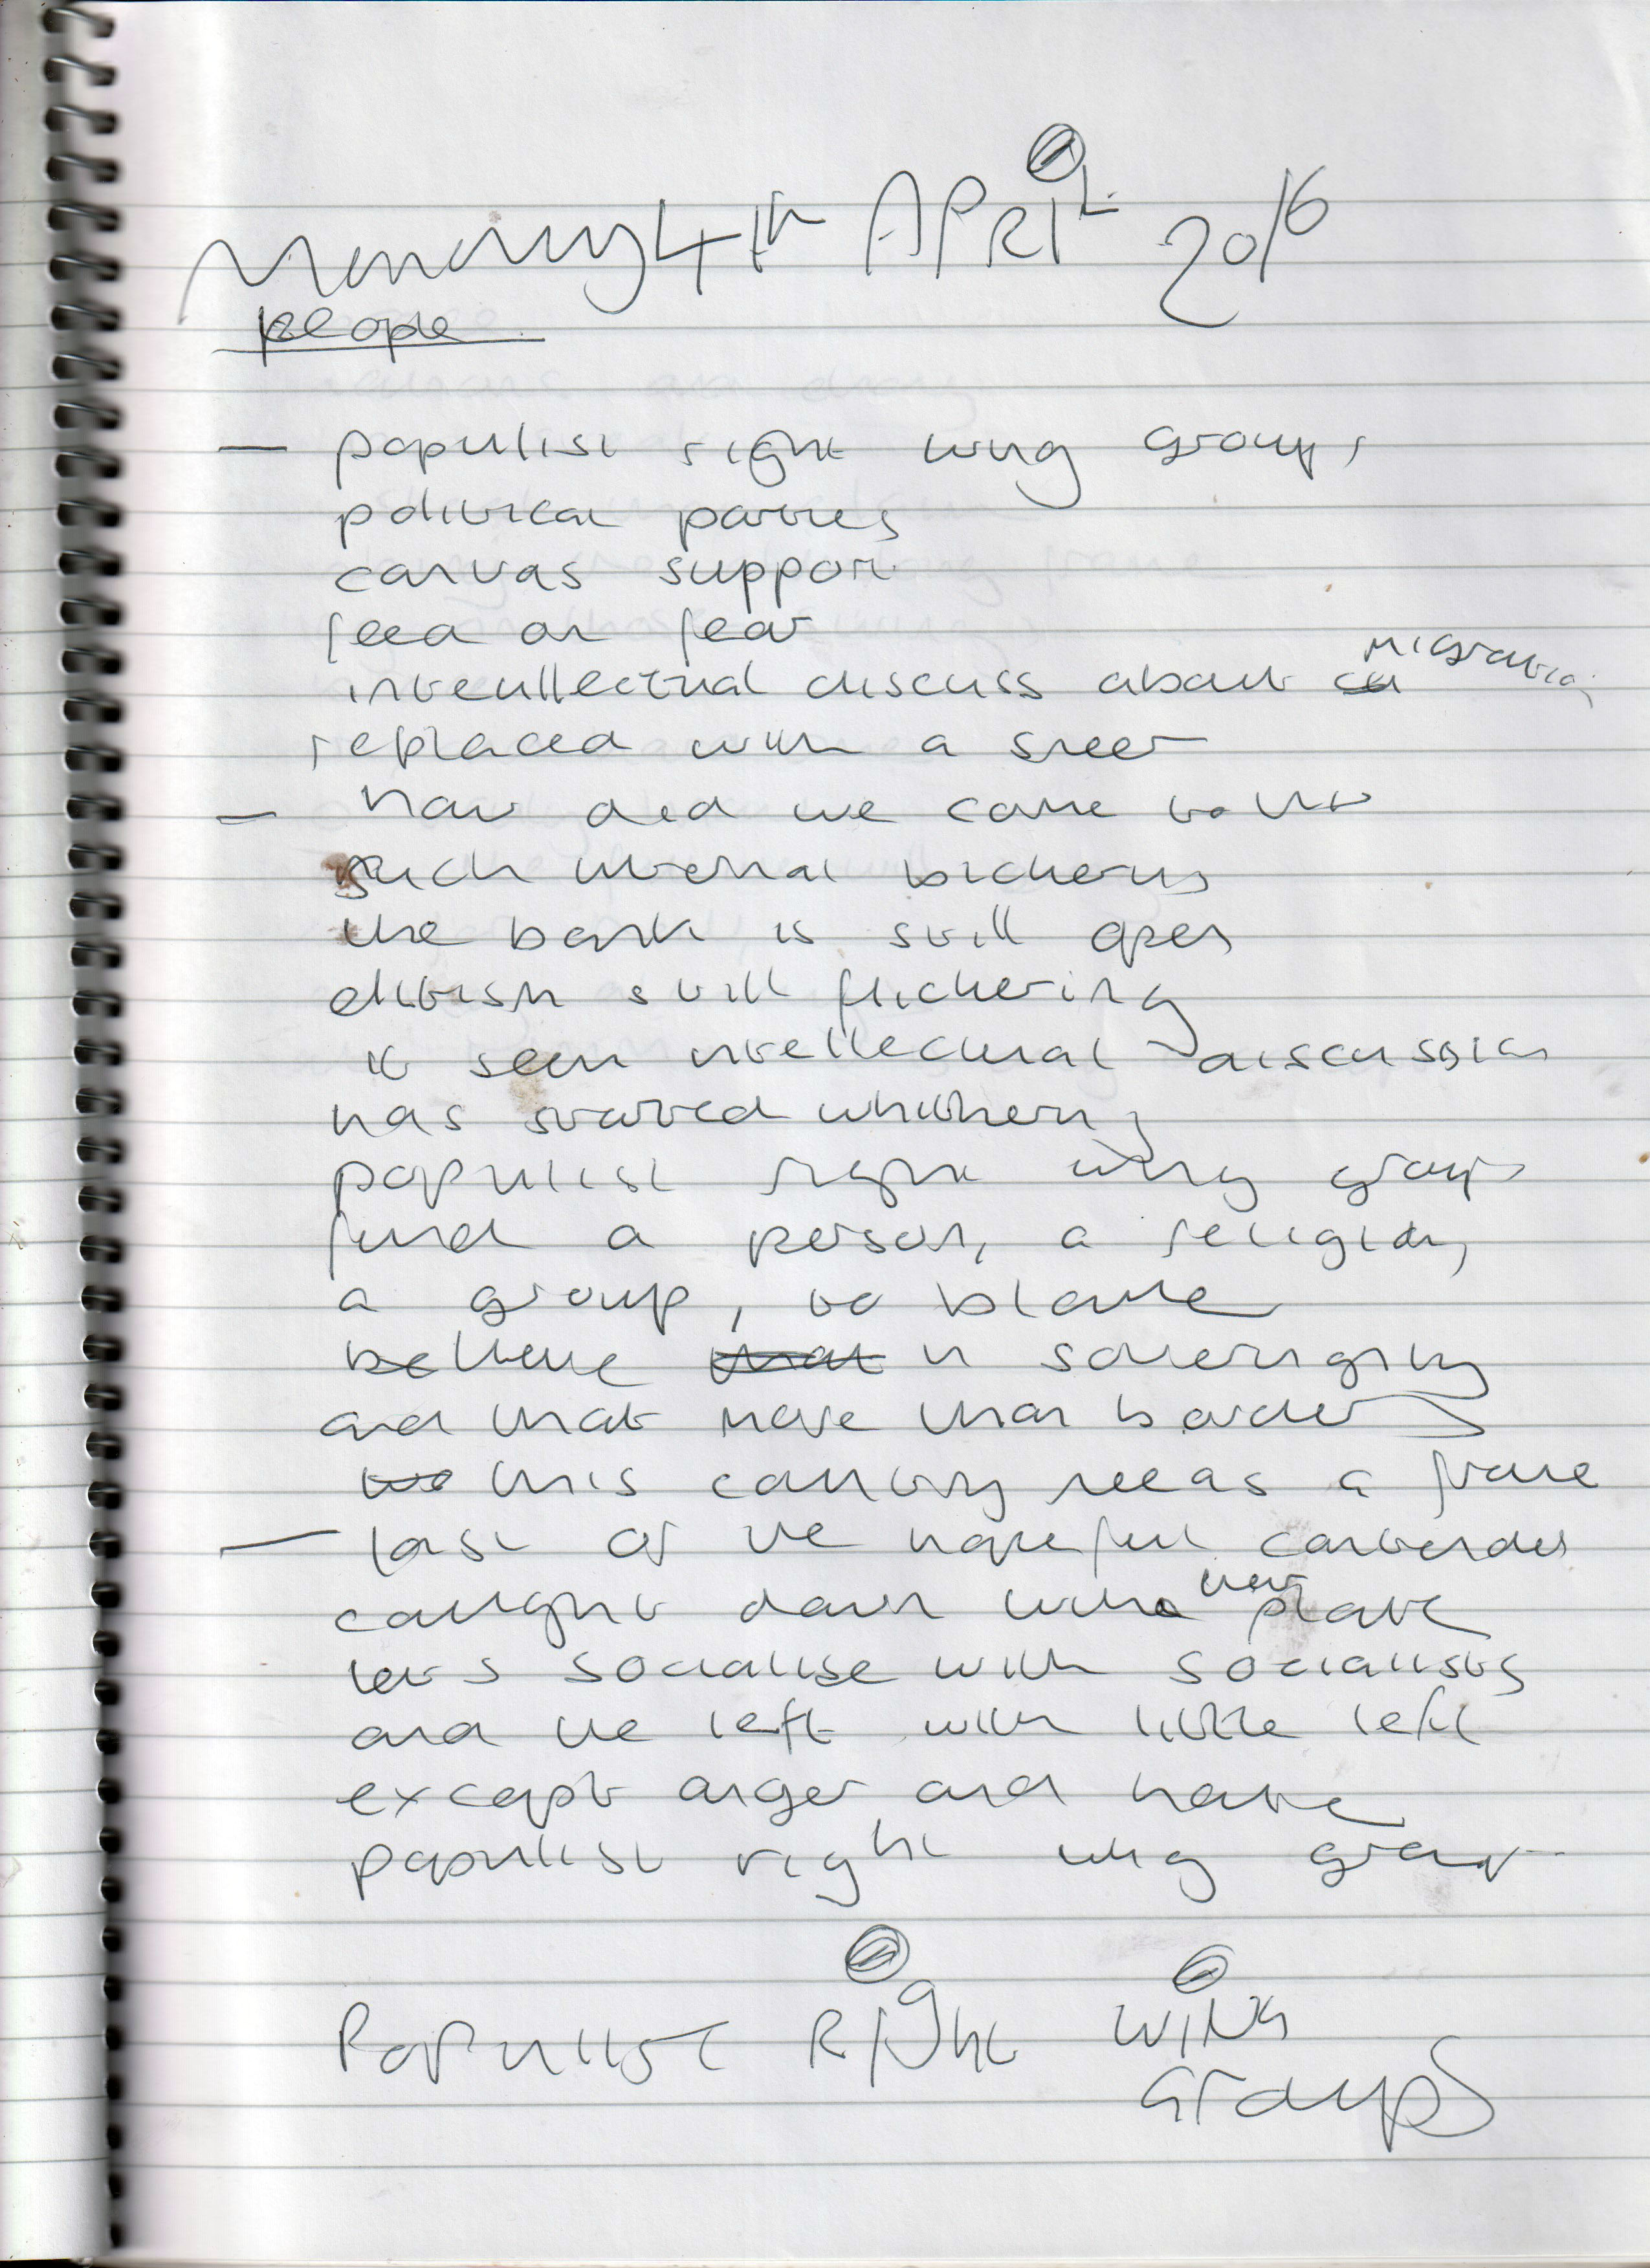 Monday 4th APRIL 2016
people
— populist right wing groups
political parties
canvas support
feed on fear
inteullectual discuss about migration
replaced with a sneer
— how did we come to this
such internal bickering
the bank is still open
still flickering
it seem intellectual discussion
has started whithering
populist right wing groups
find a person, a religion,
a group, to blame
believe in soverignity
and that more than borders
this country needs a frame
— last of the hopeful contenders
caught down with
lets socialise with socialists
and the left with little left
except anger and hate
populist right wing group
POPUlist RIght WING
Groups